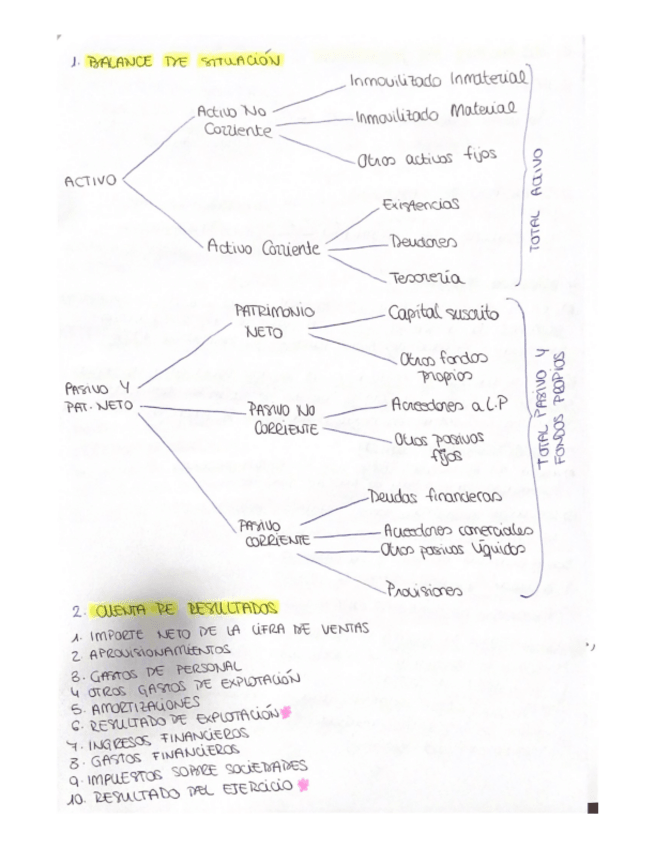 1. BALANCE DE SITUACIÓN
Inmovilizado Inmaterial
Activo No
Corriente
Inmovilizado Material
Otros activos fijos
ACTIVO
TOTAL ACTIVO
Existencias
Activo Corriente
Deudores
Tesorería
PATRIMONIO
NETO
Capital suscrito
Otros fondos
propios
PASIVO Y
PAT. NETO
PASIVO NO
CORRIENTE
Acreedores a L.P
Otros pasivos
fijos
TOTAL PASIVO Y
FONDOS PROPIOS
PASIVO
CORRIENTE
Deudas financieras
Acreedores comerciales
Otros pasivos líquidos
Provisiones
2. CUENTA DE RESULTADOS
1. IMPORTE NETO DE LA CIFRA DE VENTAS
2 APROVISIONAMIENTOS
3. GASTOS DE PERSONAL
4 OTROS GASTOS DE EXPLOTACIÓN
5. AMORTIZACIONES
6. RESULTADO DE EXPLOTACIÓN*
7. INGRESOS FINANCIEROS
8. GASTOS FINANCIEROS
9. IMPUESTOS SOBRE SOCIEDADES
10. RESULTADO DEL EJERCICIO *